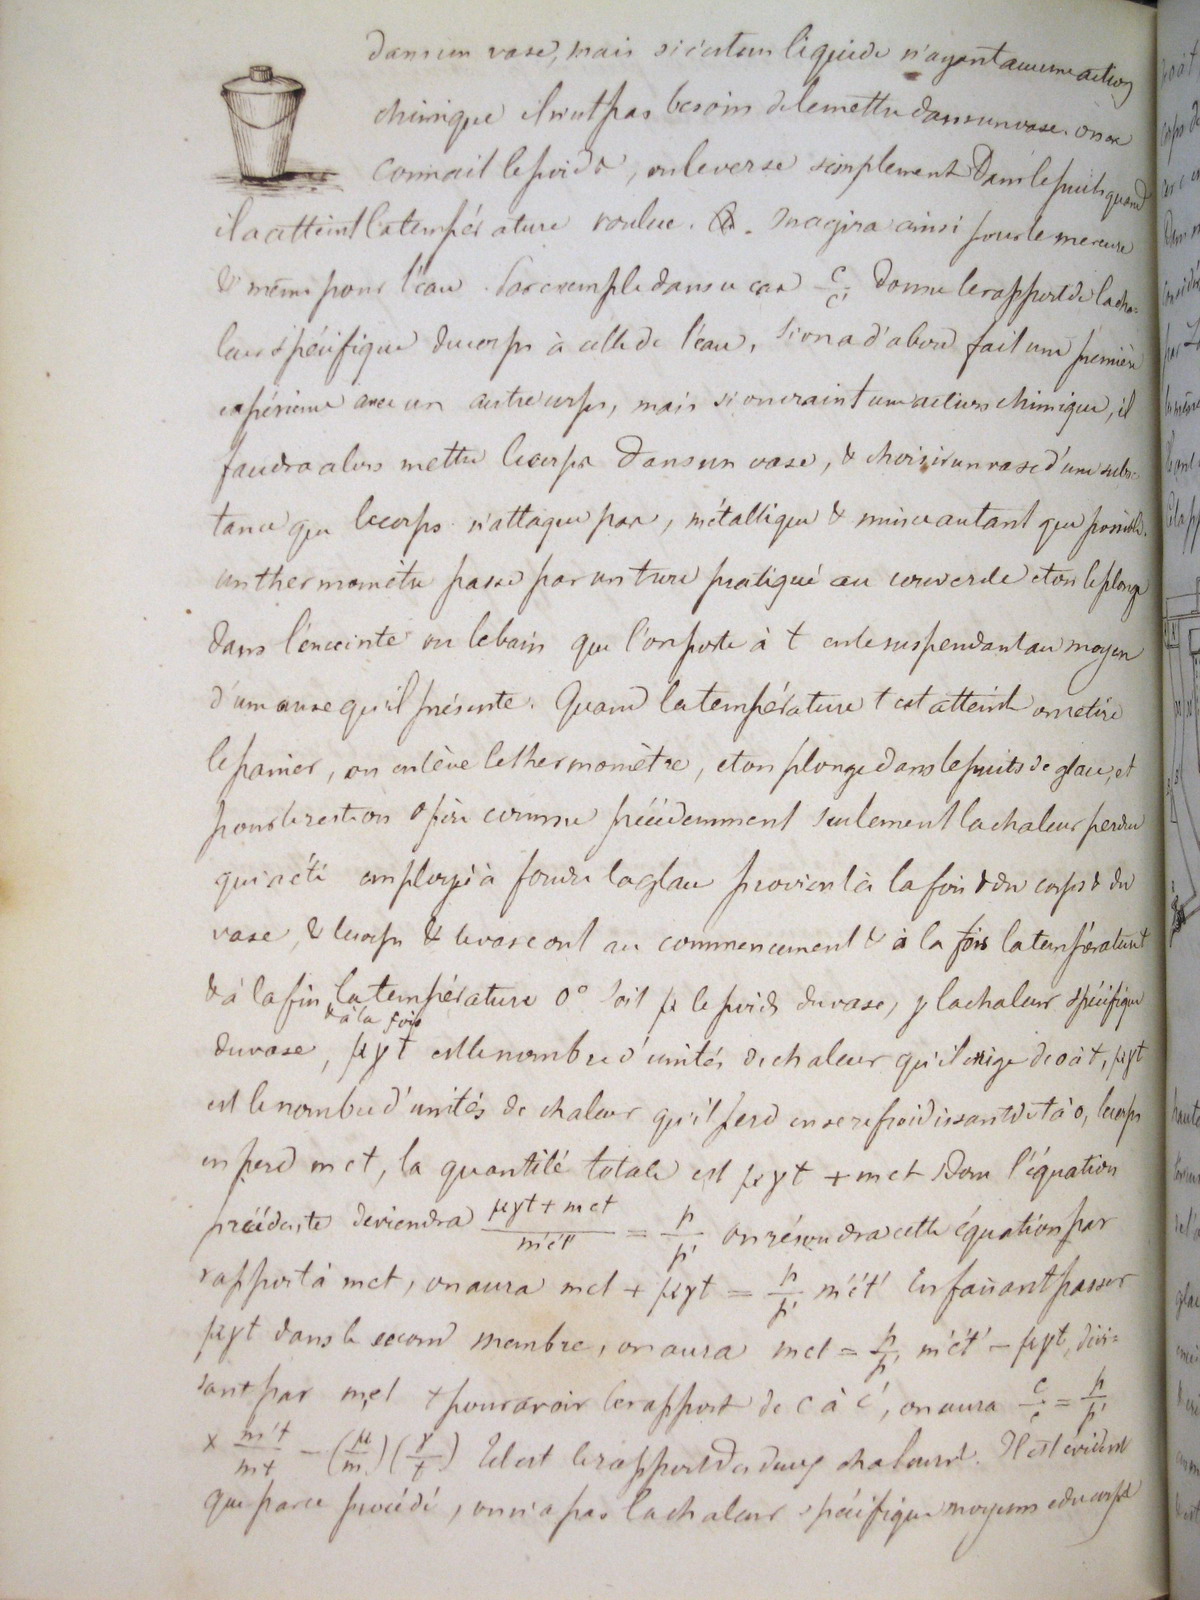 dans un vase, mais si c'est un liquide n'ayant aucune action
chimique il n'est pas besoin de le mettre dans un vase. on en
connait le poids, on le verse simplement dans le puits quand
il a atteint la température voulue. On agira ainsi pour le mercure
& même pour l'eau. Par exemple dans ce cas c/c' donne le rapport de la cha-
leur spécifique du corps à celle de l'eau, si on a d'abord fait une première
expérience avec un autre corps, mais si on craint une action chimique, il
faudra alors mettre le corps dans un vase, & choisir un vase d'une subs-
tance que le corps n'attaque pas, métallique & mince autant que possible.
un thermomètre passe par un trou pratiqué au couvercle et on le plonge
dans l'enceinte ou le bain que l'on porte à t en le suspendant au moyen
d'une anse qu'il présente. Quand la température t est atteinte on retire
le panier, on enlève le thermomètre, et on plonge dans le puits de glace, et
pour le reste on opère comme précédemment seulement la chaleur perdue
qui a été employée à fondre la glace provient à la fois & du corps & du
vase, & le corps & le vase ont au commencement & à la fois la température t
& à la fin la température 0° Soit μ le poids du vase, γ la chaleur spécifique
& à la fois
du vase, μγt est le nombre d'unités de chaleur qu'il exige de 0 à t, μγt
est le nombre d'unités de chaleur qu'il perd en se refroidissant de t à 0, le corps
en perd mct, la quantité totale est μγt + mct Donc l'équation
précédente deviendra (μγt + mct)/(m'c't') = p/p' on résoudra cette équation par
rapport à mct, on aura mct + μγt = p/p' m'c't' En faisant passer
μγt dans le second membre, on aura mct = p/p' m'c't' - μγt, divi=
sant par mct & pour avoir le rapport de c à c', on aura c/c' = p/p'
× m't'/mt - (μ/m)(γ/c') Tel est le rapport des deux chaleurs. Il est évident
que par ce procédé, on n'a pas la chaleur spécifique moyenne du corps